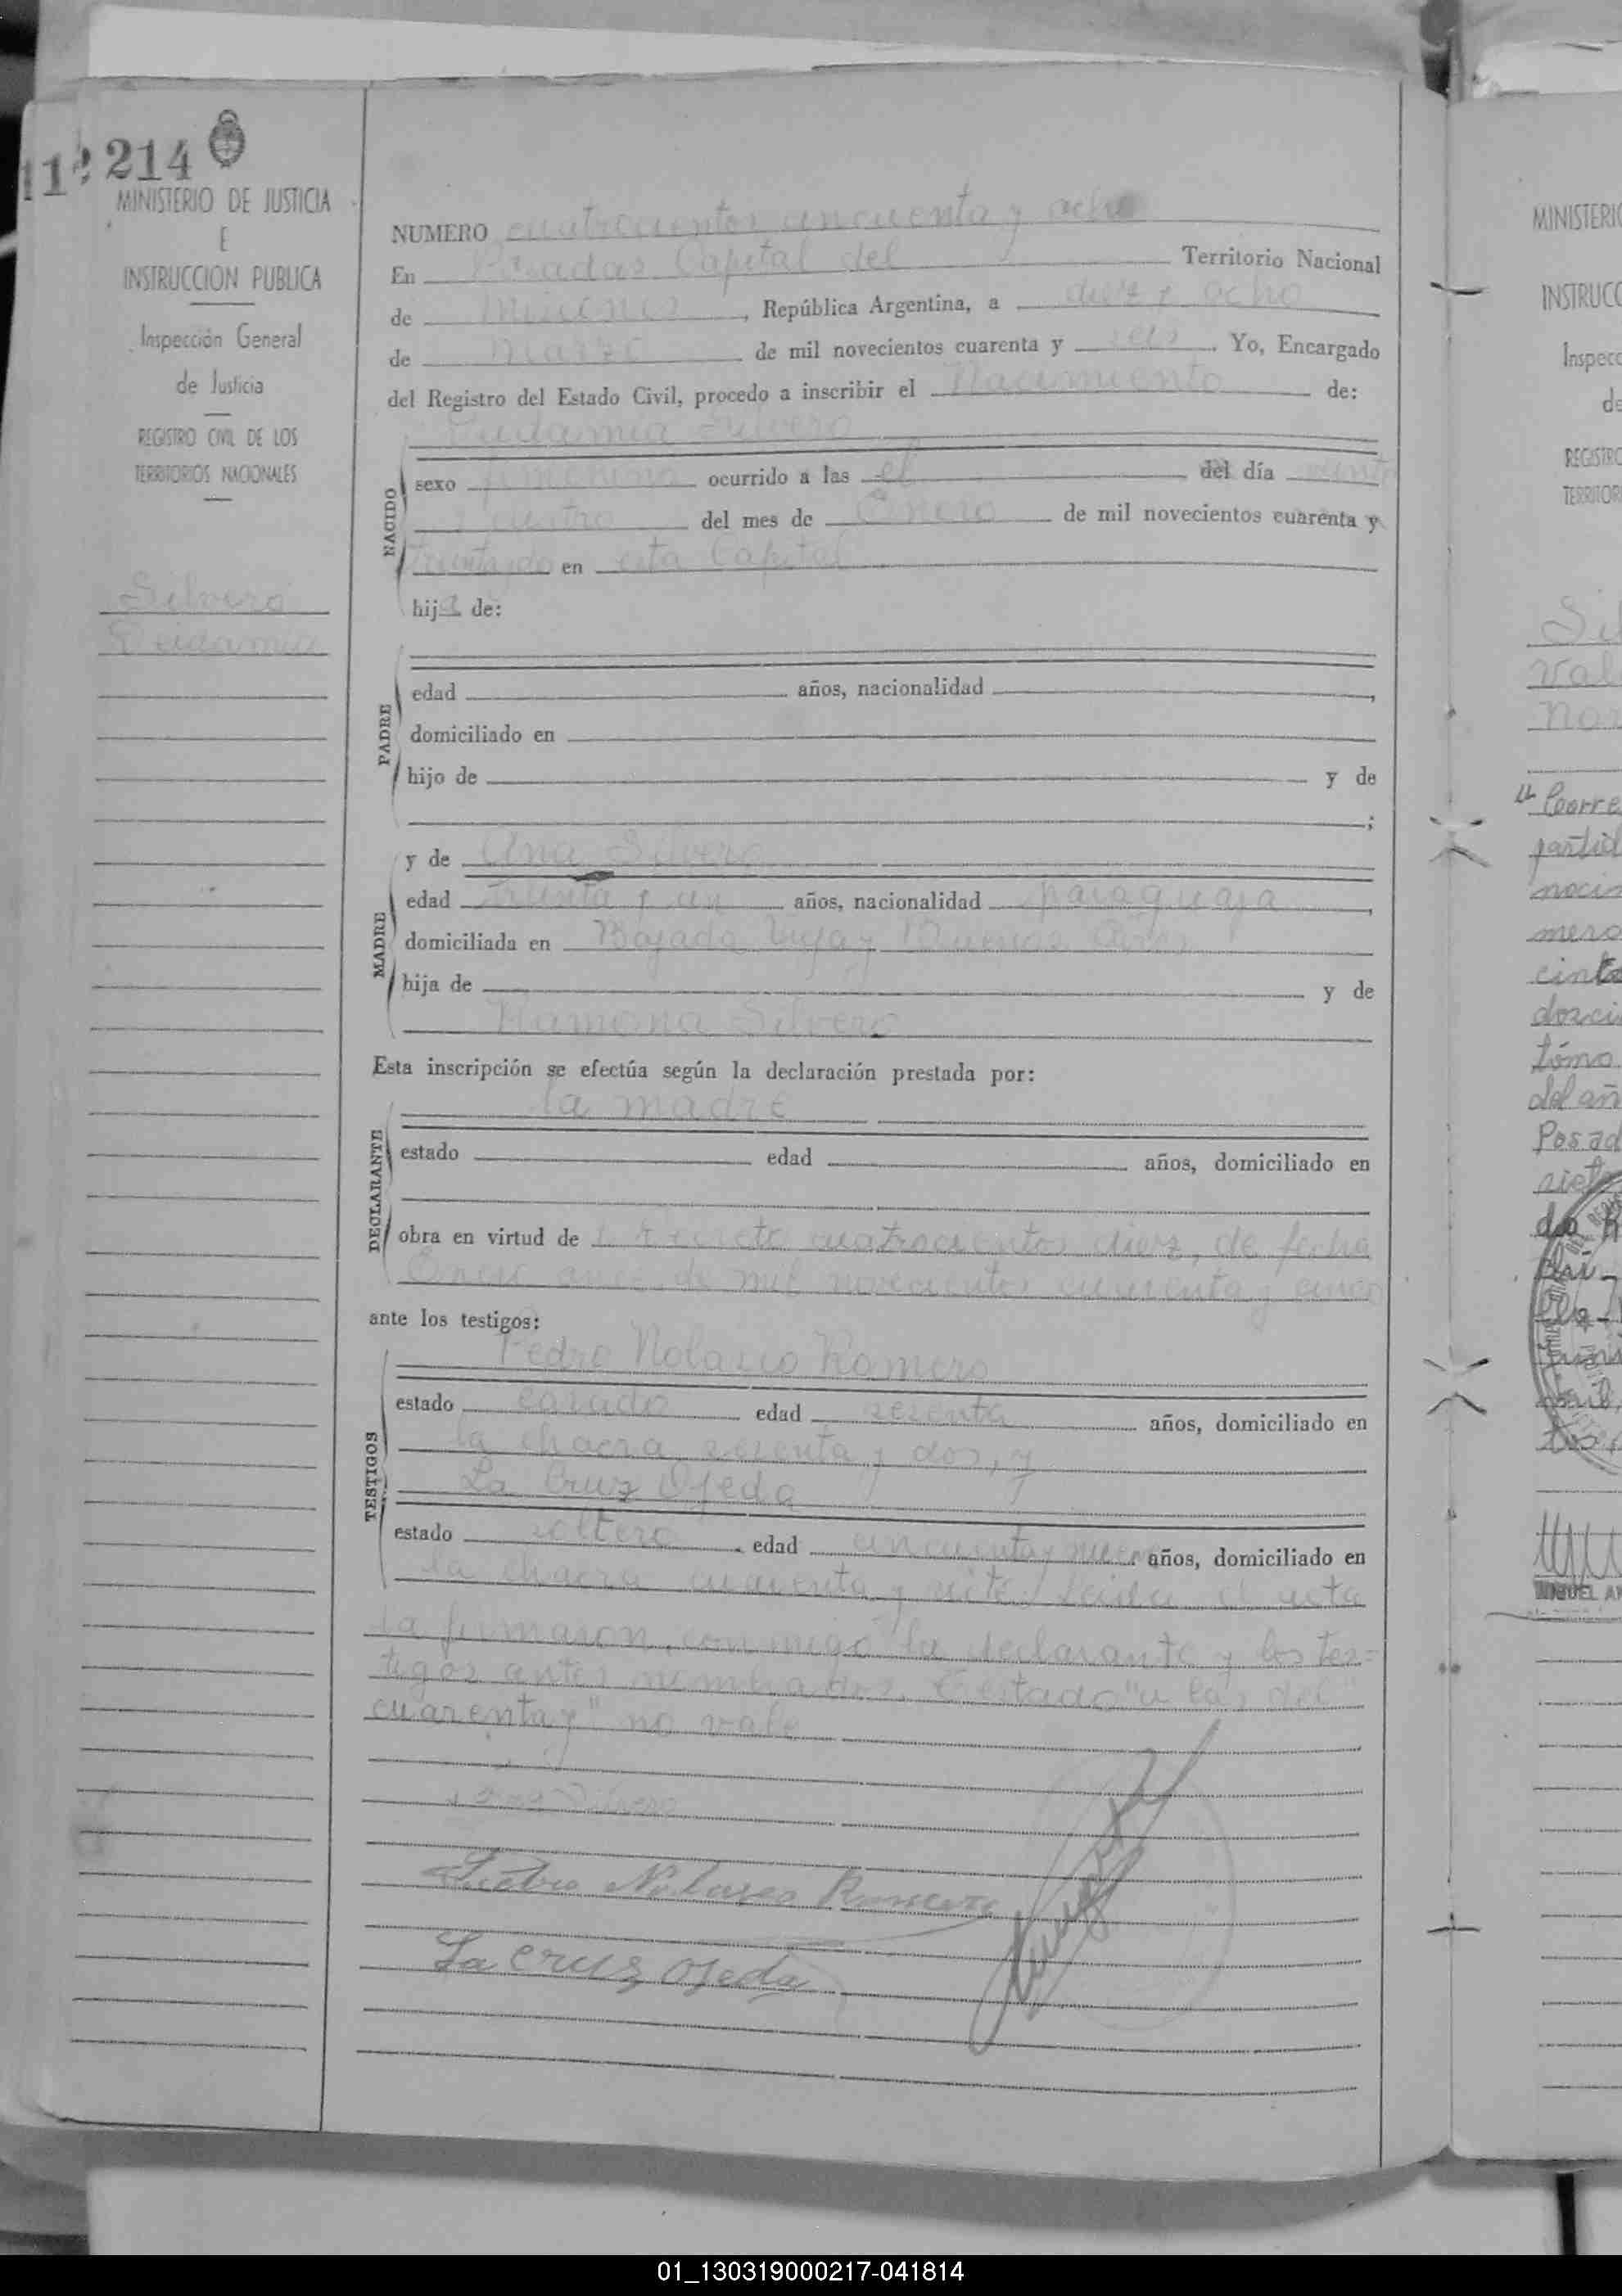 112 214
MINISTERIO DE JUSTICIA
E
INSTRUCCION PUBLICA
Inspección General
de Justicia
REGISTRO CIVIL DE LOS
TERRITORIOS NACIONALES
Silvero
Deidamia
NUMERO cuatrocientos cincuenta y ocho
En Posadas Capital del Territorio Nacional
de Misiones, República Argentina, a diez y ocho
de Marzo de mil novecientos cuarenta y seis. Yo, Encargado
del Registro del Estado Civil, procedo a inscribir el Nacimiento de:
Deidamia Silvero
NACIDO
sexo femenino ocurrido a las el del día veinti
cuatro del mes de Enero de mil novecientos cuarenta y
treinta y dos en esta Capital
hija de:
PADRE
edad años, nacionalidad ,
domiciliado en
hijo de y de
;
MADRE
y de Ana Silvero
edad treinta y un años, nacionalidad paraguaya,
domiciliada en Bajada Vieja y Buenos Aires
hija de y de
Ramona Silvero
Esta inscripción se efectúa según la declaración prestada por:
DECLARANTE
la madre
estado edad años, domiciliado en
obra en virtud de Decreto cuatrocientos diez, de fecha
Enero once de mil novecientos cuarenta y cinco
ante los testigos:
TESTIGOS
Pedro Nolasco Romero
estado casado edad sesenta años, domiciliado en
la chacra sesenta y dos, y
La Cruz Ojeda
estado soltero, edad cincuenta y nueve años, domiciliado en
la chacra cuarenta y siete. Leida el acta
la firmaron, conmigo la declarante y los tes=
tigos antes nombrados. Testado "a las del"
cuarenta y" no vale
Ana Silvero
Pedro Nolasco Romero
La Cruz Ojeda
MINISTERI
INSTRUCC
Inspecc
de
REGISTRO
TERRITOR
Si
Val
Nor
"Corre
partid
nacim
mero
cinta
dosci
tómo
del añ
Posad
siet
MIGUEL AN
01_130319000217-041814